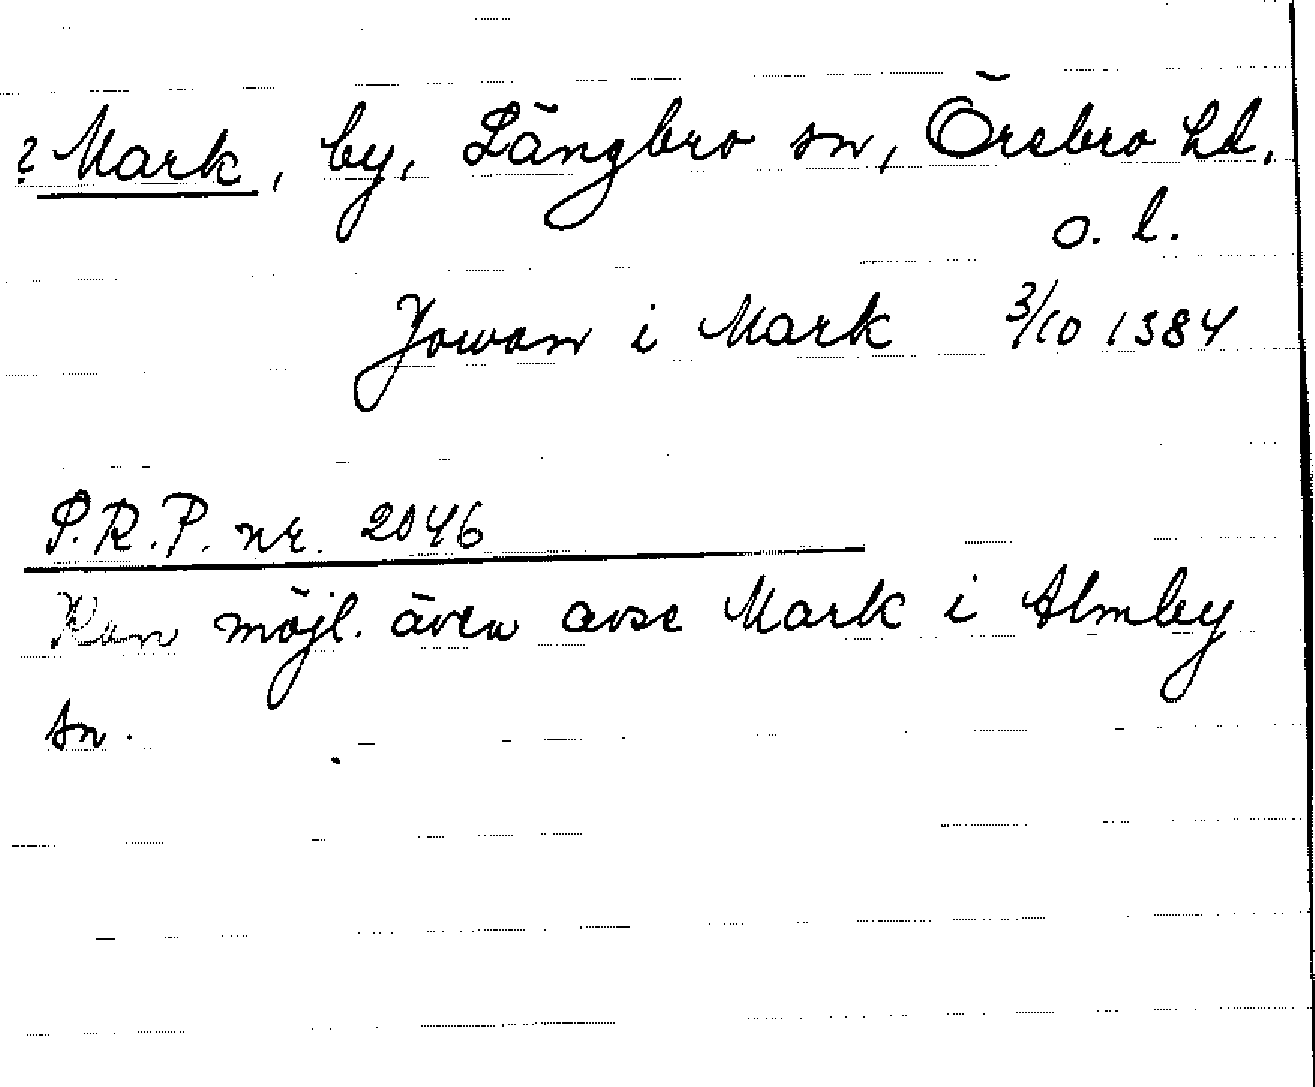 ? Mark, by, Längbro sn, Örebro hd,
o. l.
Jowan i Mark 3/10 1384
P.R.P. nr. 2046
Kan möjl. även avse Mark i Almby
sn.